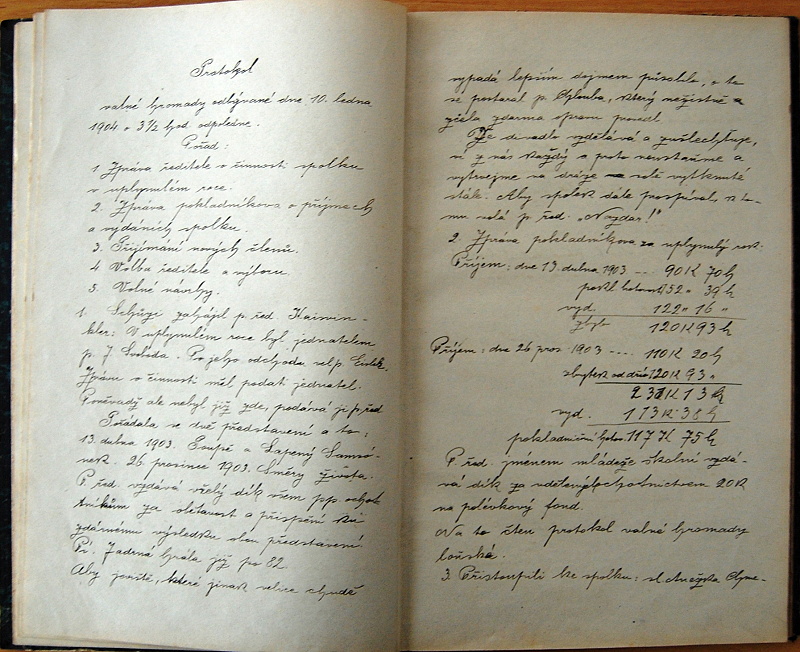 Protokol
valné hromady odbývané dne 10. ledna
1904 o 3 1/2 hod. odpoledne.
Pořad:
1. Zpráva ředitele o činnosti spolku
v uplynulém roce.
2. Zpráva pokladníkova o příjmech
a vydáních spolku.
3. Přijímání nových členů.
4. Volba ředitele a výboru.
5. Volné návrhy.
1. Schůzi zahájil p. řed. Kaiwin-
kler: V uplynulém roce byl jednatelem
p. J. Svoboda. Po jeho odchodu
Zprávu o činnosti měl podati jednatel.
Poněvadž ale nebyl již zde, podává ji p. řed
Pořádala se dvě představení a to:
13. dubna 1903. Loupé a Lapený Samsó-
nek. 26. prosince 1903. Směry života.
P. řed. vzdává vřelý dík všem pp. ochot-
níkům za obětavost a přispění ku
zdárnému výsledku obou představení
Pí. Zadená hrála již po 82.
Aby jeviště, které jinak velice chudě
vypadá lepším dojmem působilo, o to
se postaral p. Chlouba, který nezištně a
zcela zdarma opravu provedl.
Že divadlo vzdělává a zušlechťuje,
ví z nás každý a proto neustaňme a
vytrvejme na dráze sobě vytknuté
stále. Aby spolek dále prospíval, k to-
mu volá p. řed. „Nazdar!"
2. Zpráva pokladníkova za uplynulý rok:
Příjem: dne 13. dubna 1903 ---- 90 K 70 h
pokl. hotovost 152 „ 39 h
vyd. 122 „ 16 „
zbyt 120 K 93 h
Příjem: dne 26. pros. 1903 ---- 110 K 20 h
zbytek od dřív 120 K 93 „
231 K 13 h
vyd. 113 K 38 h
pokladniční hotov. 117 K 75 h
P. řed. jménem mládeže školní vzdá-
vá dík za udělených ochotnictvem 20 K
na polévkový fond.
Na to čten protokol valné hromady
loňské.
3. Přistoupili ke spolku: sl. Anežka